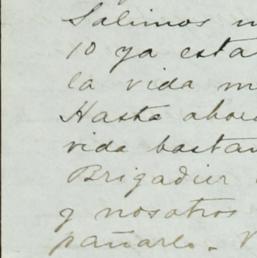 Salimos
10 ya esta
la vida m
Hasta ahor
vida bastan
Brigadier
y nosotros
pañarlo.